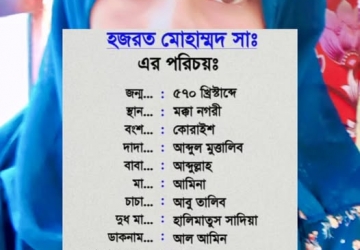 হজরত মোহাম্মদ সাঃ
এর পরিচয়ঃ
জন্ম... : ৫৭০ খ্রিস্টাব্দে
স্থান... : মক্কা নগরী
বংশ... : কোরাইশ
দাদা... : আব্দুল মুত্তালিব
বাবা... : আব্দুল্লাহ
মা... : আমিনা
চাচা... : আবু তালিব
দুধ মা... : হালিমাতুস সাদিয়া
ডাকনাম... : আল আমিন